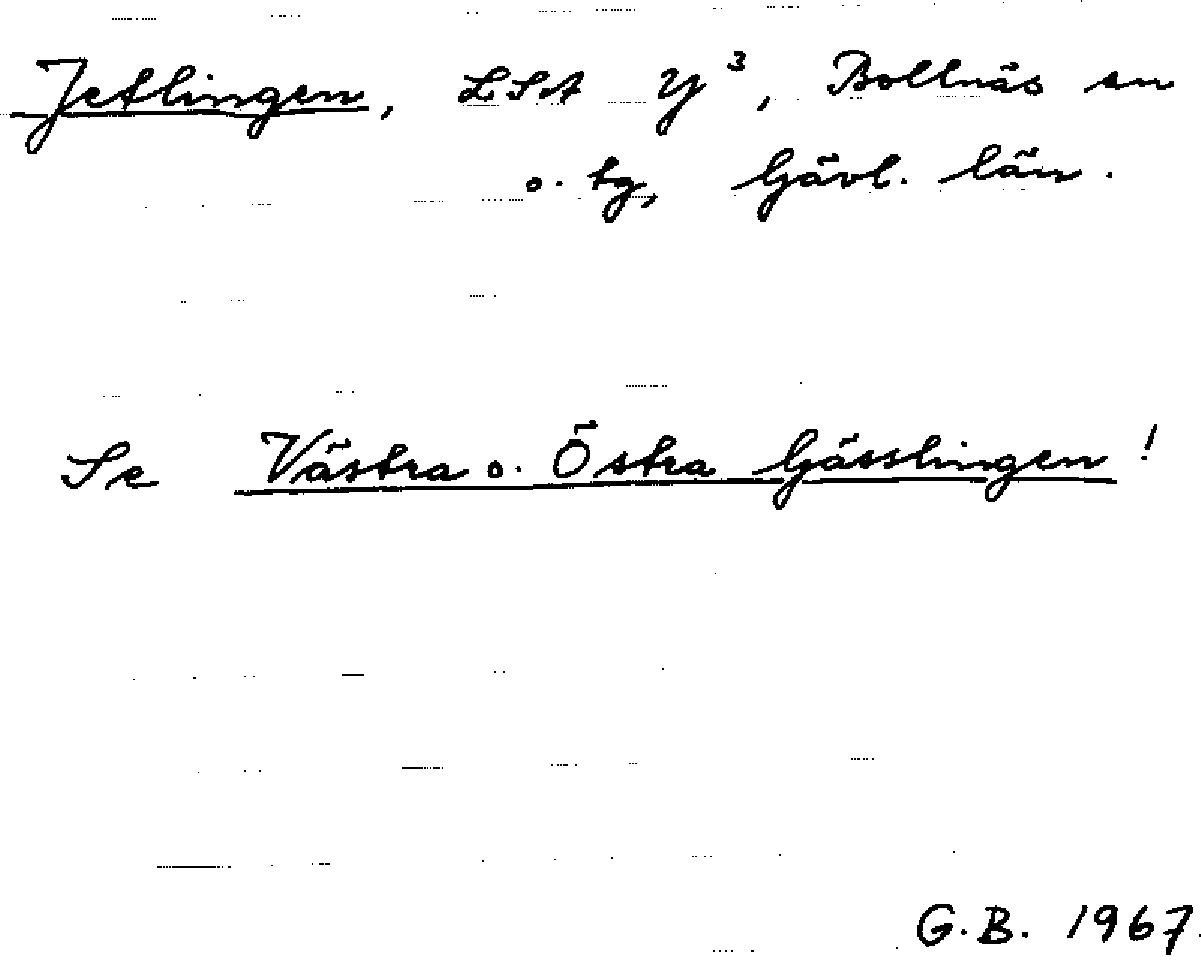 Jetlingen, LSA Y³, Bollnäs sn
o. tg, Gävl. län.
Se Västra o. Östra Gässlingen!
G.B. 1967.